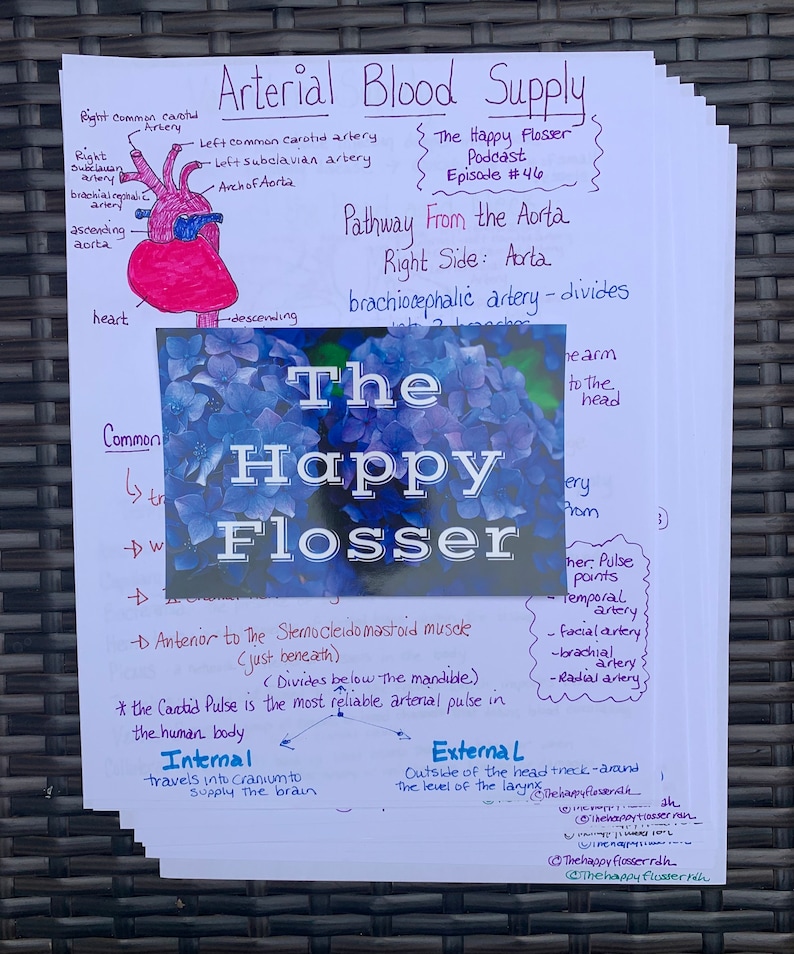 Arterial Blood Supply
Right common carotid
Artery
Left common carotid artery
Right
subclavian
artery
Left subclavian artery
Arch of Aorta
brachial cephalic
artery
ascending
aorta
heart
descending
The Happy Flosser
Podcast
Episode #46
Pathway From the Aorta
Right Side: Aorta
brachiocephalic artery - divides
into 2 branches
he arm
to the
head
Common
The
Happy
Flosser
ery
from
her: Pulse
points
- Temporal
artery
- facial artery
- brachial
artery
- Radial artery
Anterior to the Sternocleidomastoid muscle
(just beneath)
(Divides below the mandible)
* the Carotid Pulse is the most reliable arterial pulse in
the human body
Internal
travels into cranium to
supply the brain
External
Outside of the head + neck - around
the level of the larynx
©Thehappyflosserrdh
©Thehappyflosserrdh
©Thehappyflosserrdh
©Thehappyflosserrdh
©Thehappyflosserrdh